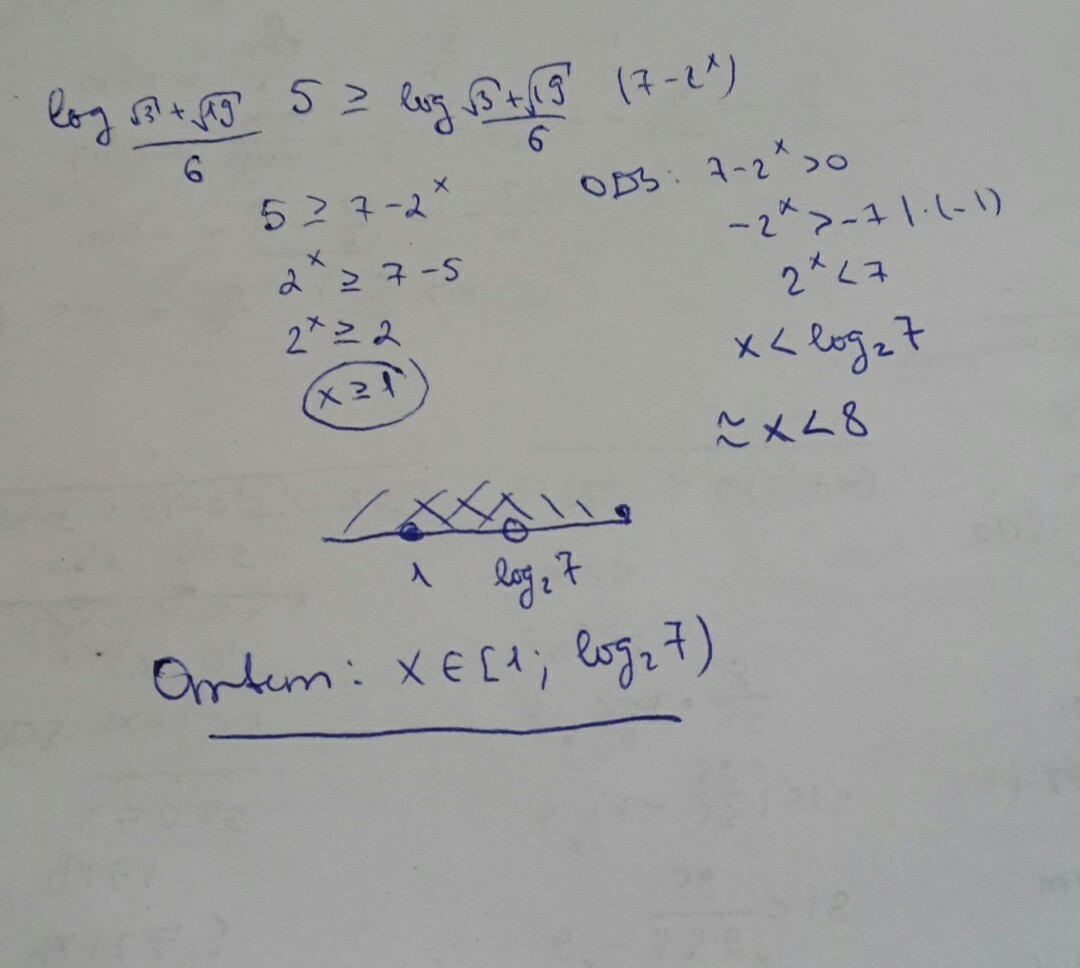 log (√3+√19)/6 5 ≥ log (√3+√19)/6 (7-2^x)
5 ≥ 7-2^x
2^x ≥ 7-5
2^x ≥ 2
x ≥ 1
ОДЗ: 7-2^x>0
-2^x > -7 |·(-1)
2^x < 7
x < log₂7
≈ x < 8
1 log₂7
Ответ: x ∈ [1; log₂7)